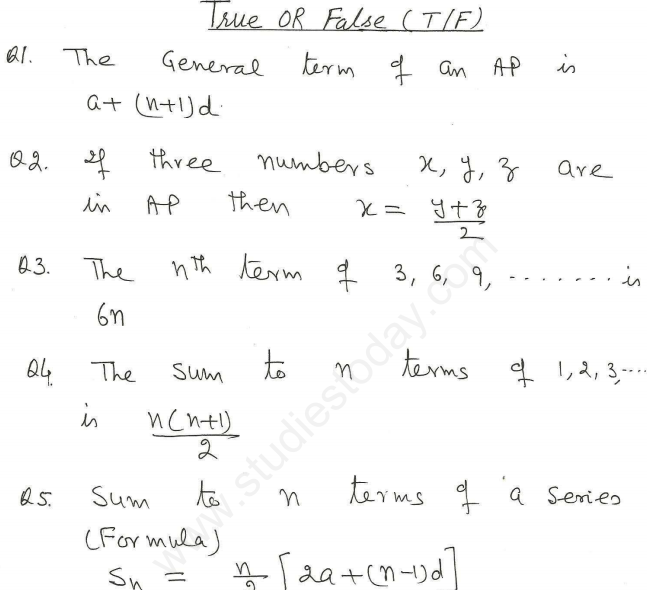 True OR False (T/F)
Q1. The General term of an AP is
a+ (n+1)d.
Q2. If three numbers x, y, z are
in AP then x = y+z/2
Q3. The nth term of 3, 6, 9, ........ is
6n
Q4. The sum to n terms of 1, 2, 3,....
is n(n+1)/2
Q5. Sum to n terms of a series
(Formula)
Sn = n/2 [2a+(n-1)d]
www.studiestoday.com